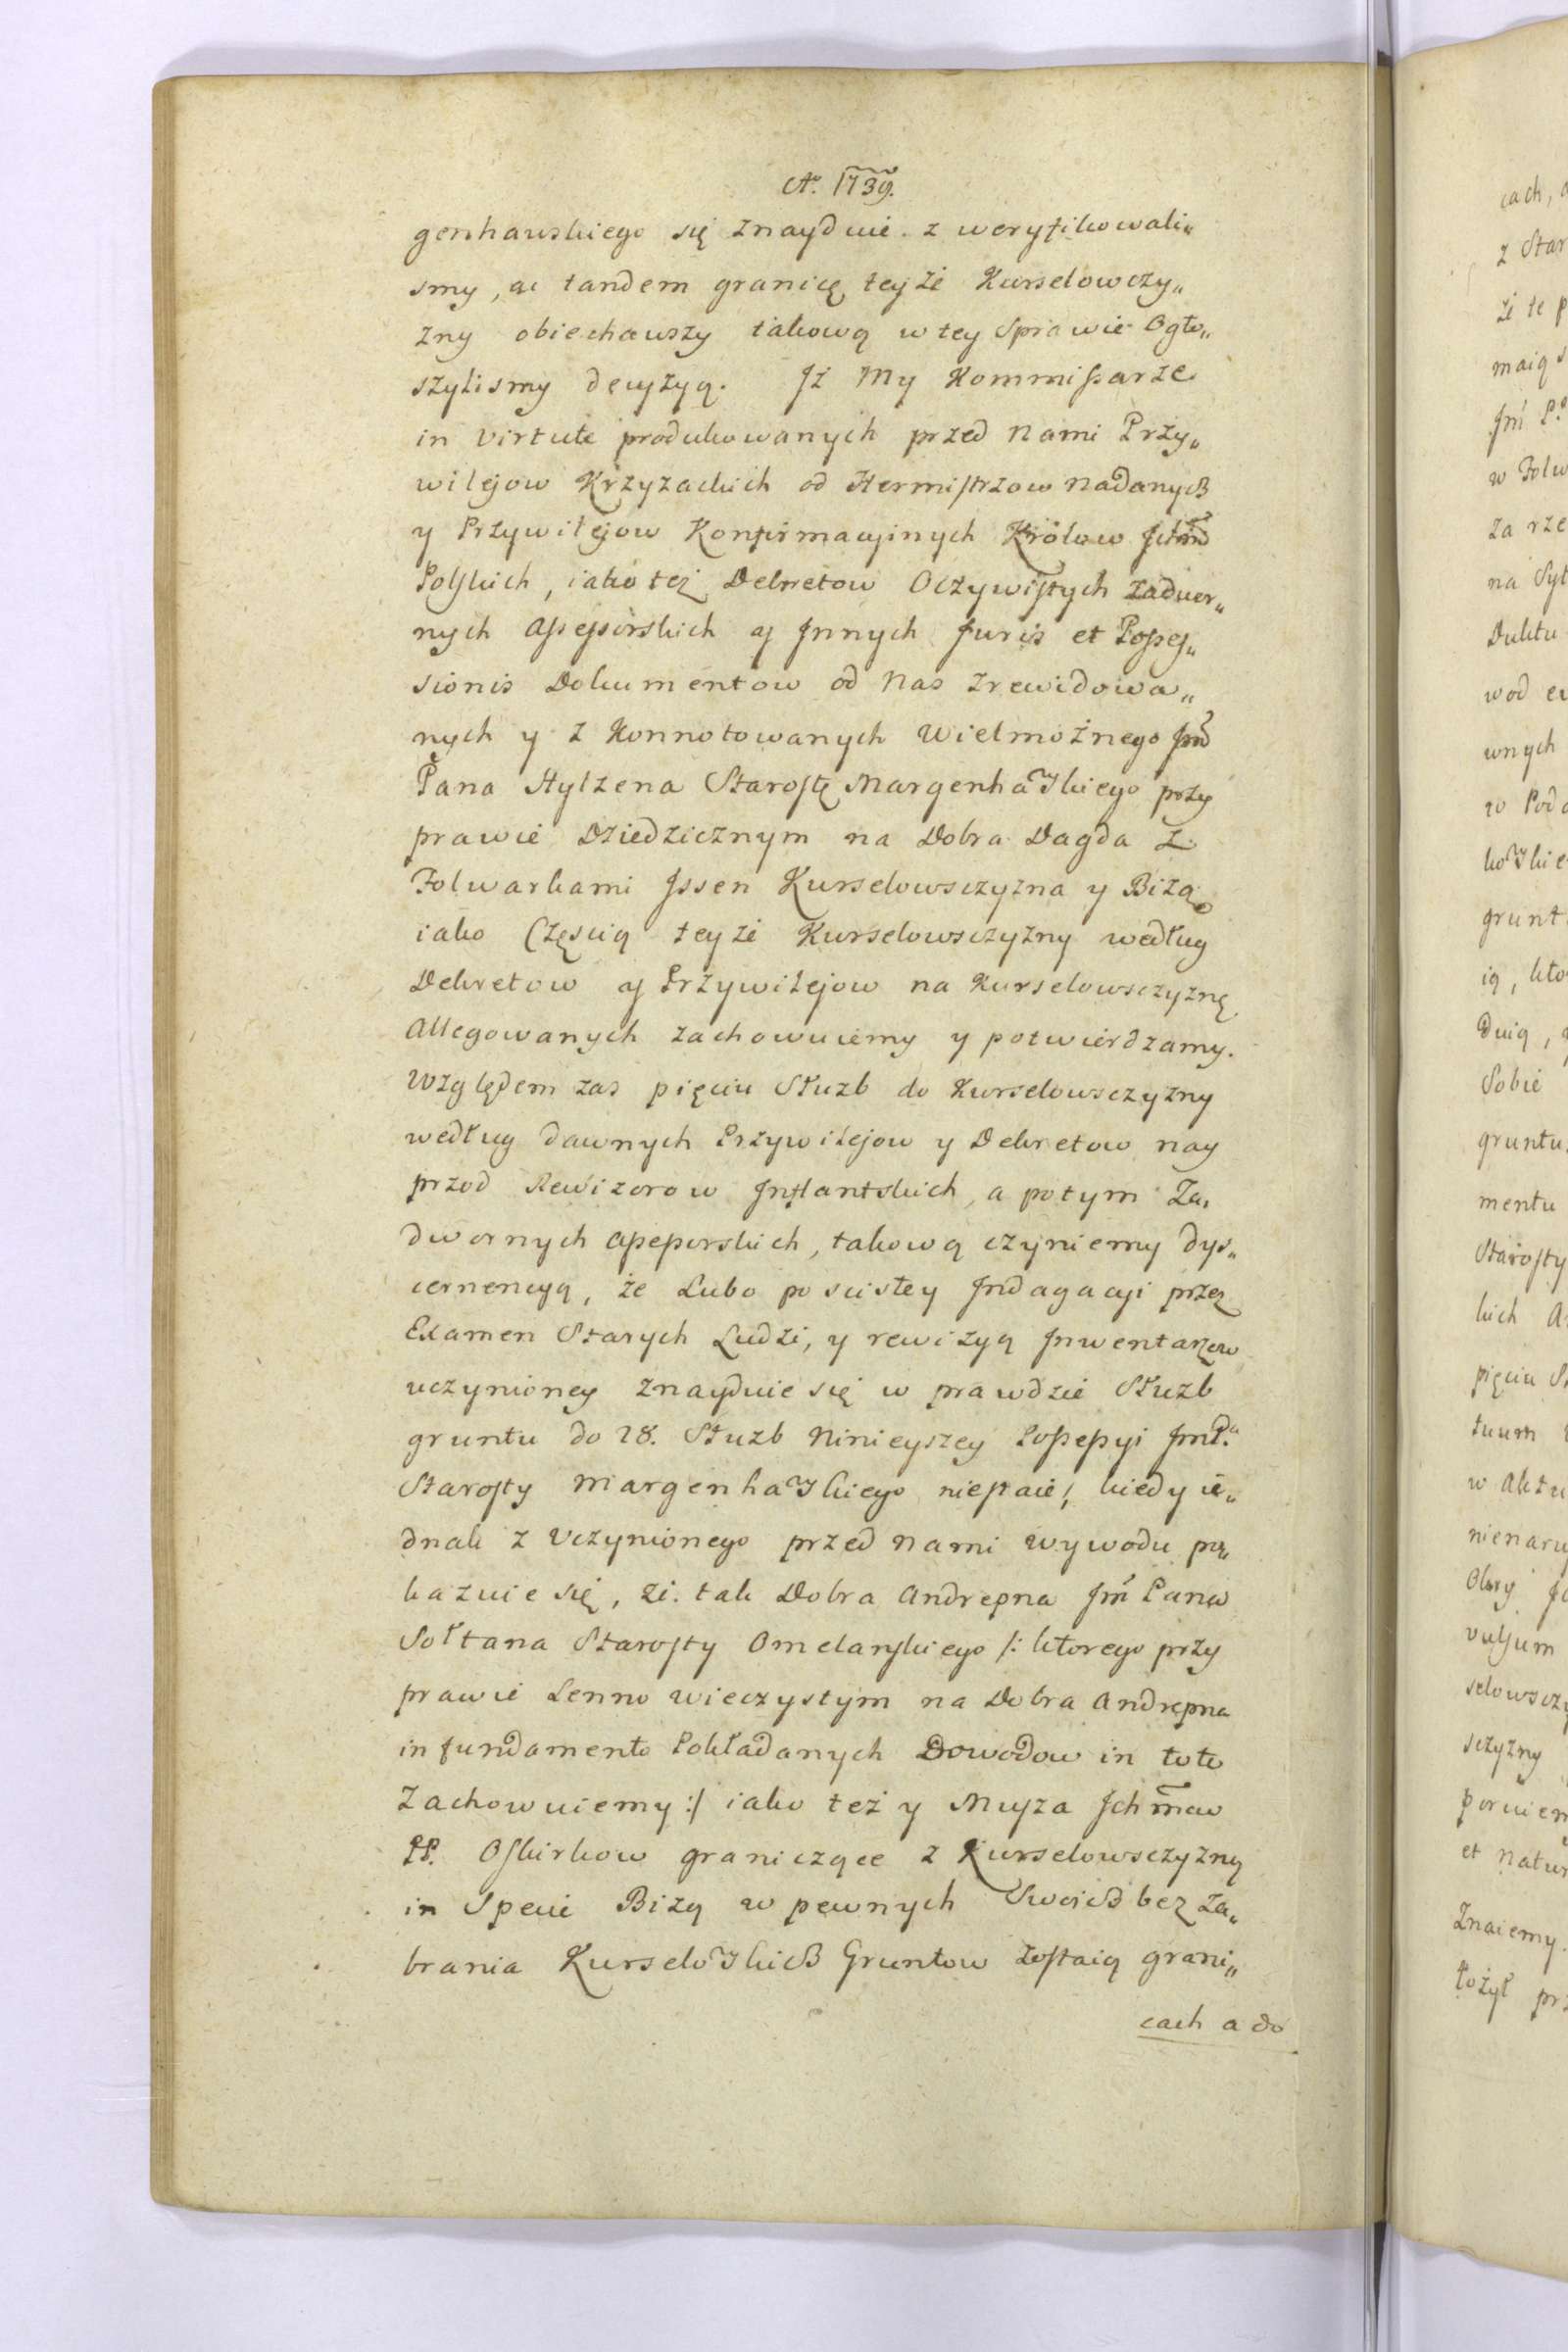 Aº. 1739.
genhauskiego się znayduie. z weryfikowali„
smy, ac tandem granicę teyże Kurselowczy„
zny obiechawszy takową w tey Sprawie Ogło„
szylismy decyzyą. Jż My Kommissarze
in virtute produkowanych przed nami Przy„
wilejow Krzyzackich od Hermistrzow nadanych
y Przywilejow Konfirmacyinych Królow Jchm
Polskich, iako też Dekretow Oczywistych zadwor„
nych Assessorskich y Jnnych Juris et Posses„
sionis Dokumentow od Nas zrewidowa„
nych y z Konnotowanych Wielmożnego Jm
Pana Hylzena Starostę Margenhawskiego przy
prawie Dziedzicznym na Dobra Dagda z
Folwarkami Jssen Kurselowsczyzna y Bizą
iako Częscią teyże Kurselowsczyzny według
Dekretow y Przywilejow na Kurselowsczyznę
Allegowanych zachowuiemy y potwierdzamy.
Względem zas pięciu Służb do Kurselowsczyzny
według dawnych Przywilejow y Dekretow nay
przod Rewizorow Jnflantskich, a potym Za„
dwornych Assessorskich, takową czyniemy dys„
cernencyą, że Lubo po scisłey Jndagacyi przez
Examen Starych Ludzi, y rewizyą Jnwentarzow
uczynioney znayduie się w prawdzie Służb
gruntu do 28. Służb Ninieyszey Possessyi JmPa
Starosty Margenhawskiego niestaie, kiedy ie„
dnak z Uczynionego przed nami wywodu po„
kazuie się, że tak Dobra Andrepna Jm Pana
Sołtana Starosty Omelanskiego /: ktorego przy
prawie Lenno wieczystym na Dobra Andrepna
in fundamento Pokładanych Dowodow in toto
Zachowuiemy :/ iako też y Muyza Jchmcw
PP. Oskirkow graniczące z Kurselowsczyzną
in Specie Bizą w pewnych Swoich bez za„
brania Kurselowskich Gruntow zostaią grani„
cach a do
cach,
z Star
że te p
maią s
Jm P.
w Folw
za rze
na Syt
Duktu
wod
wnych
w Pod
kowskie
grunt
ią, kto
duią,
Sobie
gruntu
mentu
Starosty
kich
pięciu S
tuum
w Aktu
nienaru
Obry
vulsum
selowsczy
sczyzny
poruiem
et natur
Znaiemy.
łożył prz